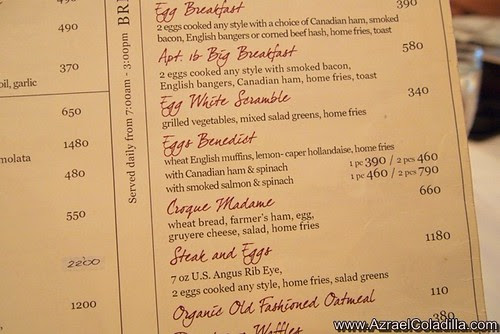 490
490
370
oil, garlic
650
1480
molata
480
550
2200
1200
Served daily from 7:00am - 3:00pm
Egg Breakfast 390
2 eggs cooked any style with a choice of Canadian ham, smoked
bacon, English bangers or corned beef hash, home fries, toast
Apt. 1b Big Breakfast 580
2 eggs cooked any style with smoked bacon,
English bangers, Canadian ham, home fries, toast
Egg White Scramble 340
grilled vegetables, mixed salad greens, home fries
Eggs Benedict
wheat English muffins, lemon- caper hollandaise, home fries
with Canadian ham & spinach 1 pc 390 / 2 pcs 460
with smoked salmon & spinach 1 pc 460 / 2 pcs 790
Croque Madame 660
wheat bread, farmer's ham, egg,
gruyere cheese, salad, home fries
Steak and Eggs 1180
7 oz U.S. Angus Rib Eye,
2 eggs cooked any style, home fries, salad greens
Organic Old Fashioned Oatmeal 110
Waffles 380
www.AzraelColadilla.com